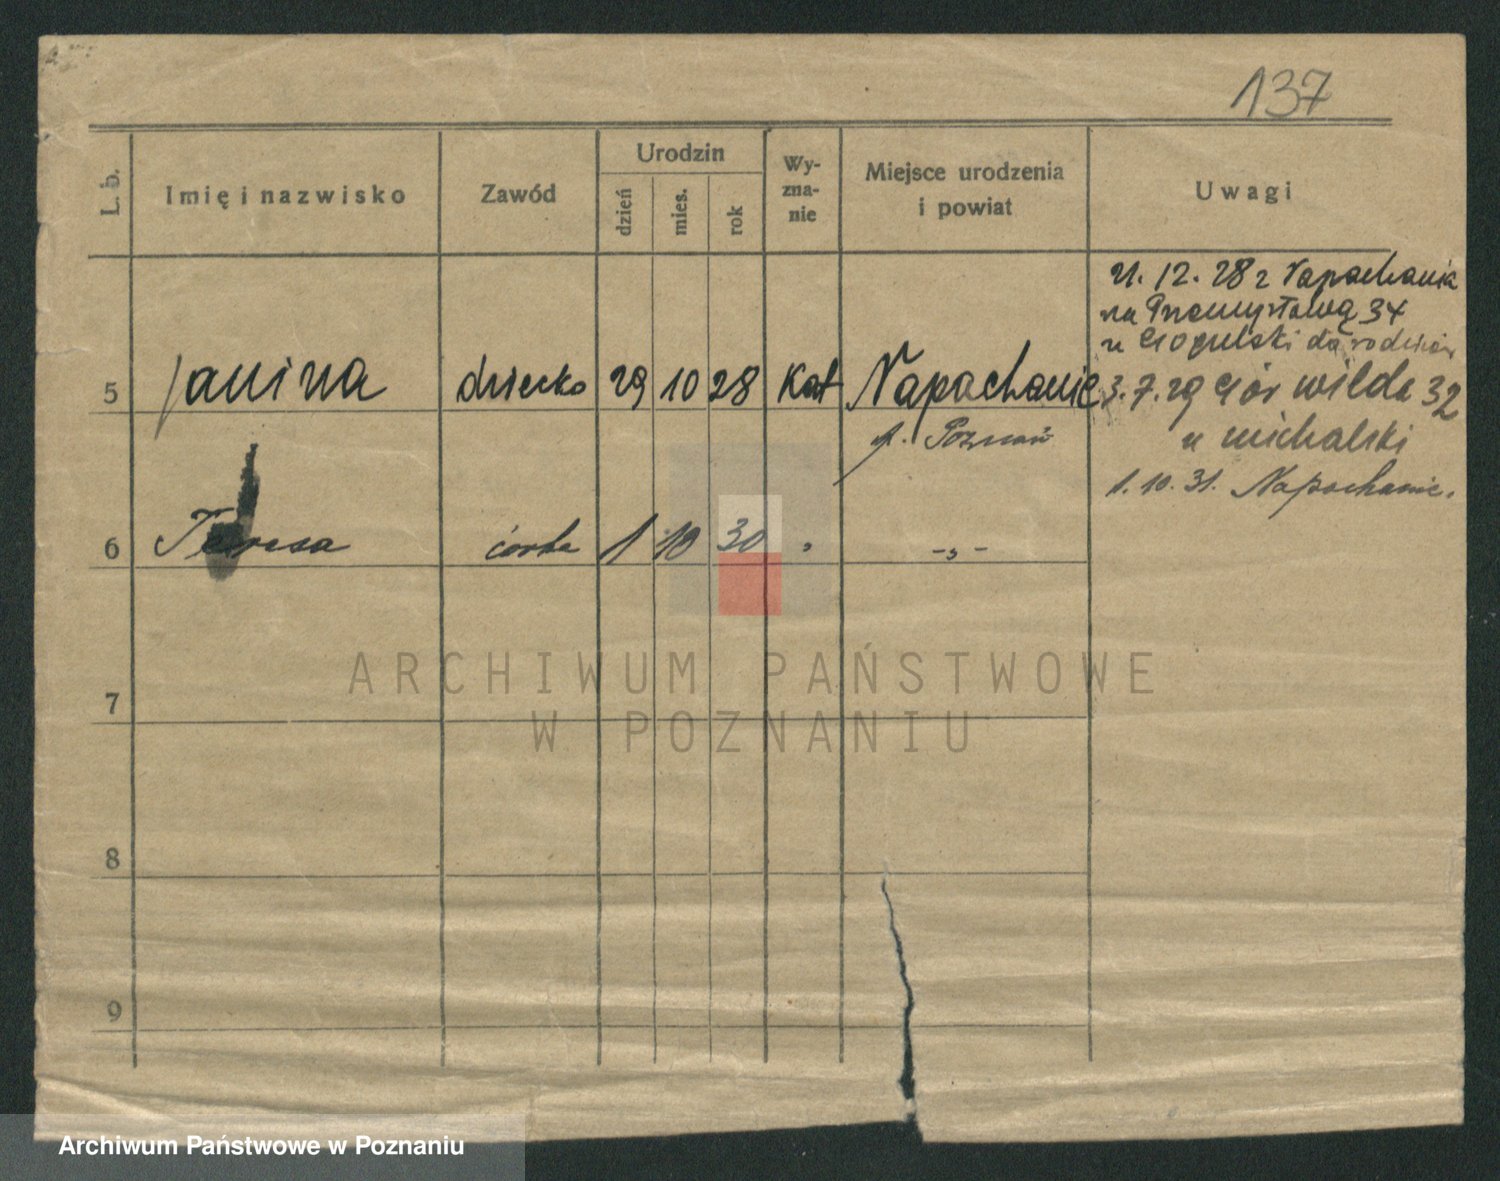 137
L. b. Imię i nazwisko Zawód Urodzin dzień mies. rok Wy-zna-nie Miejsce urodzenia i powiat Uwagi
21. 12. 28 z Napachania
na Przemysłową 34
u do rodziców
5 Janina dziecko 29 10 28 Kat Napachanie 3. 7. 29 Gór Wilda 32
p. Poznań u Michalski
1. 10. 31. Napachanie.
6 Teresa córka 1 10 30 " -"-
7
8
9
ARCHIWUM PAŃSTWOWE
W POZNANIU
Archiwum Państwowe w Poznaniu